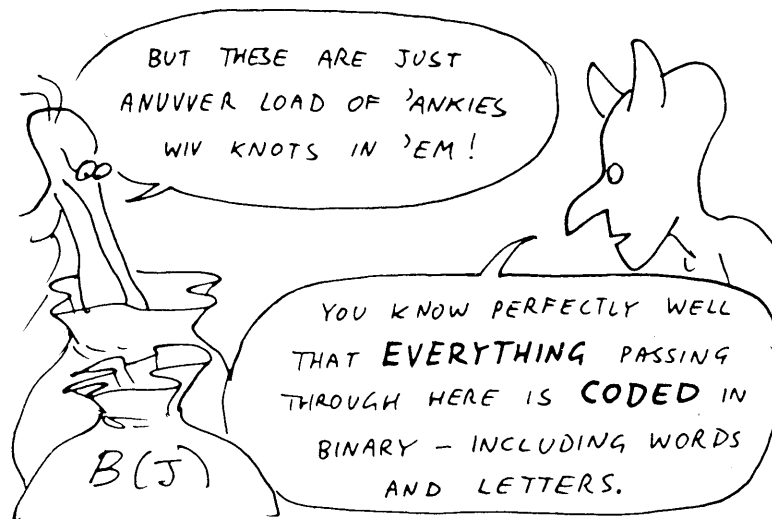 BUT THESE ARE JUST
ANUVVER LOAD OF 'ANKIES
WIV KNOTS IN 'EM!
YOU KNOW PERFECTLY WELL
THAT EVERYTHING PASSING
THROUGH HERE IS CODED IN
BINARY – INCLUDING WORDS
AND LETTERS.
B(J)